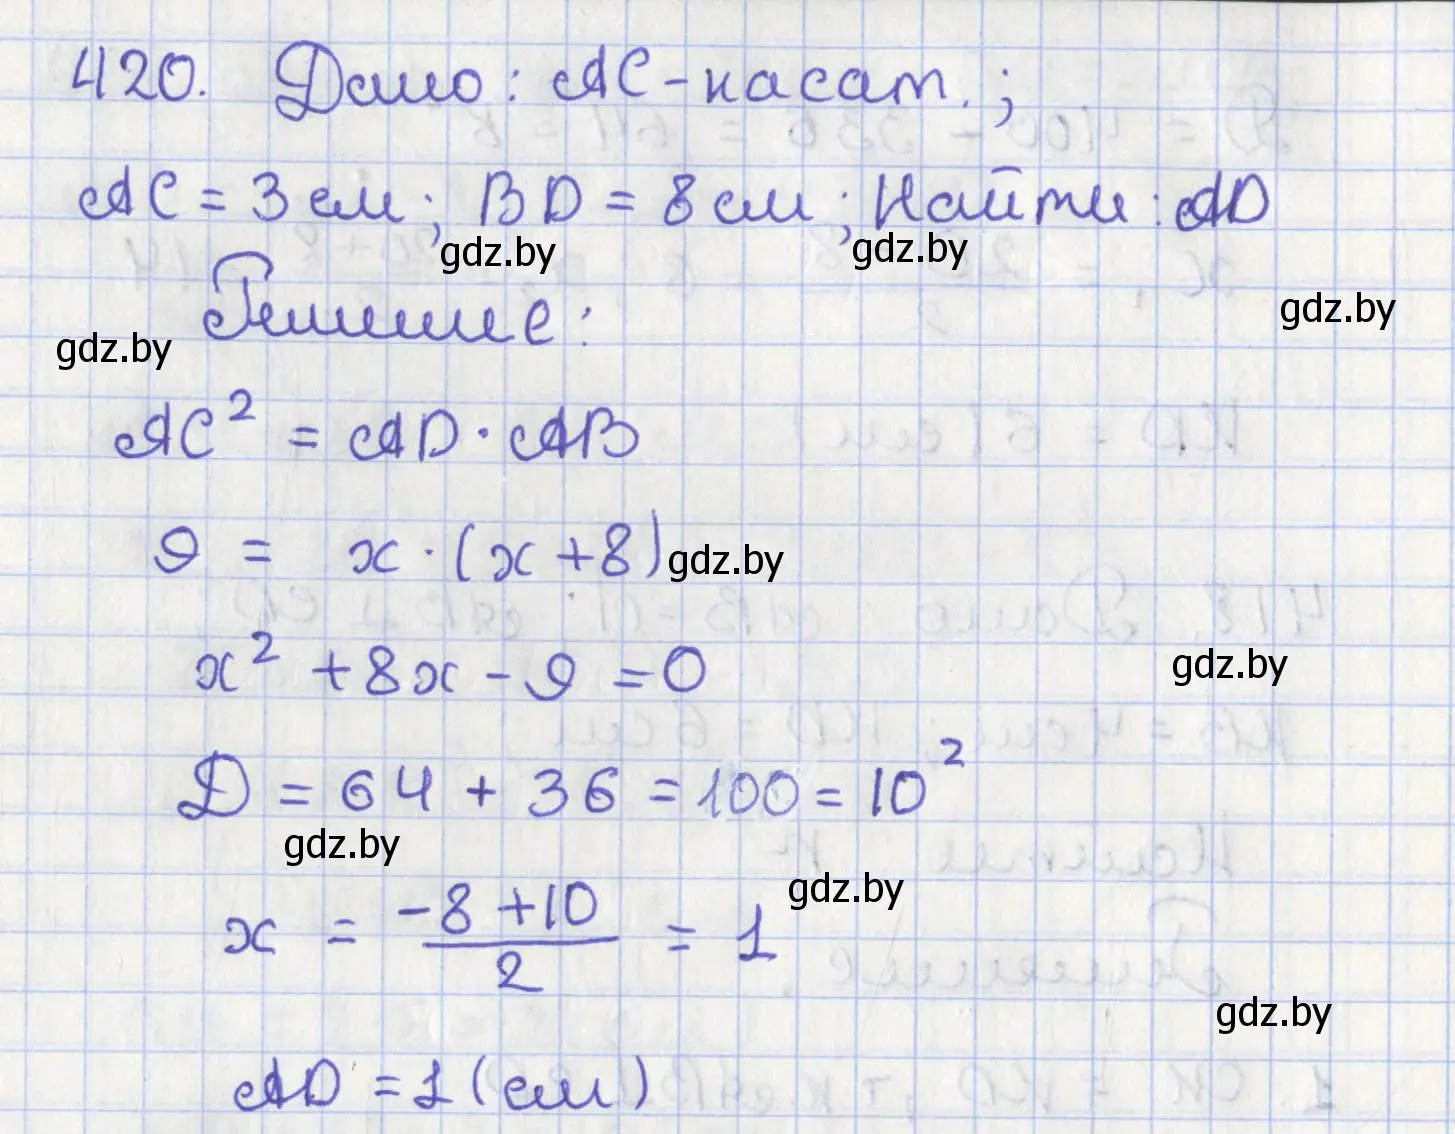 420. Дано: AC-касат.;
AC = 3 см; BD = 8 см; Найти: AD
gdz.by
gdz.by
gdz.by
Решение:
gdz.by
AC² = AD · AB
9 = x · (x + 8)
gdz.by
x² + 8x - 9 = 0
gdz.by
Д = 64 + 36 = 100 = 10²
gdz.by
gdz.by
x = \frac{-8 + 10}{2} = 1
gdz.by
AD = 1 (см)